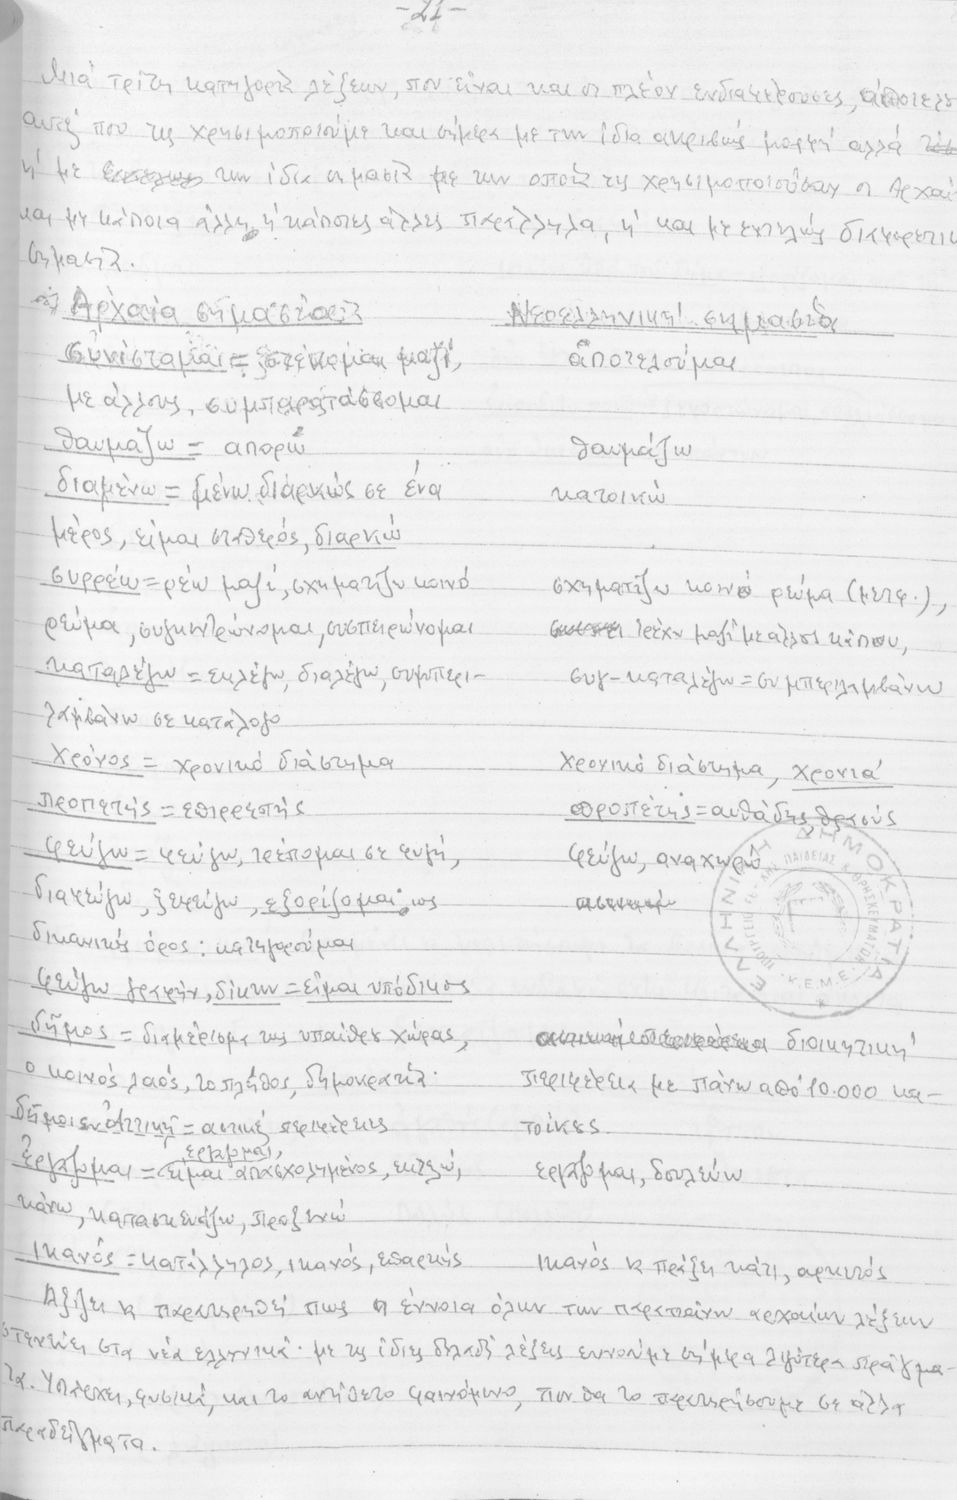 -21-
Μιά τρίτη κατηγορία λέξεων, που είναι και οι πλέον ενδιαφέρουσες, αποτελο
αυτές που τις χρησιμοποιούμε και σήμερα με την ίδια ακριβώς μορφή αλλά
ή με την ίδια σημασία με την οποία τις χρησιμοποιούσαν οι Αρχαί
και με κάποια άλλη, ή κάποιες άλλες παράλληλα, ή και με εντελώς διαφορετικ
σημασία.
Αρχαία σημασία Νεοελληνική σημασία
συνίσταμαι = στέκομαι μαζί, αποτελούμαι
με άλλους, συμπαρατάσσομαι
θαυμάζω = απορώ θαυμάζω
διαμένω = μένω διαρκώς σε ένα κατοικώ
μέρος, είμαι σταθερός, διαρκώ
συρρέω = ρέω μαζί, σχηματίζω κοινό σχηματίζω κοινό ρεύμα (μετφ.),
ρεύμα, συγκεντρώνομαι, συσπειρώνομαι τρέχω μαζί με άλλους κάπου,
καταλέγω = εκλέγω, διαλέγω, συμπερι- συγ-καταλέγω = συμπεριλαμβάνω
λαμβάνω σε κατάλογο
χρόνος = χρονικό διάστημα χρονικό διάστημα, χρονιά
προπετής = επιρρεπής προπέτης = αυθάδης θρασύς
φεύγω = φεύγω, τρέπομαι σε φυγή, φεύγω, αναχωρώ
διαφεύγω, ξεφεύγω, εξορίζομαι, ως
δικανικός όρος: κατηγορούμαι
φεύγω γραφήν, δίκην = είμαι υπόδικος
δῆμος = διαμέρισμα της υπαίθρου χώρας, διοικητική
ο κοινός λαός, το πλήθος, δημοκρατία· περιφέρεια με πάνω από 10.000 κα-
δῆμοι ἐν Ἀττικῇ = αστικές περιφέρειες τοίκους.
εργάζομαι,
ἐργάζομαι = είμαι απασχολημένος, εκτελώ, εργάζομαι, δουλεύω
κάνω, κατασκευάζω, προξενώ
ικανός = κατάλληλος, ικανός, επαρκής ικανός να πράξει κάτι, αρκετός
Αξίζει να παρατηρηθεί πως η έννοια όλων των παραπάνω αρχαίων λέξεων
στενεύει στα νέα ελληνικά· με τις ίδιες δηλαδή λέξεις εννοούμε σήμερα λιγότερα πράγμα-
τα. Υπάρχει, φυσικά, και το αντίθετο φαινόμενο, που θα το παρατηρήσουμε σε άλλα
παραδείγματα.
ΕΛΛΗΝΙΚΗ ΔΗΜΟΚΡΑΤΙΑ
ΥΠΟΥΡΓΕΙΟ ΕΘ. ΠΑΙΔΕΙΑΣ & ΘΡΗΣΚΕΥΜΑΤΩΝ
Κ.Ε.Μ.Ε.